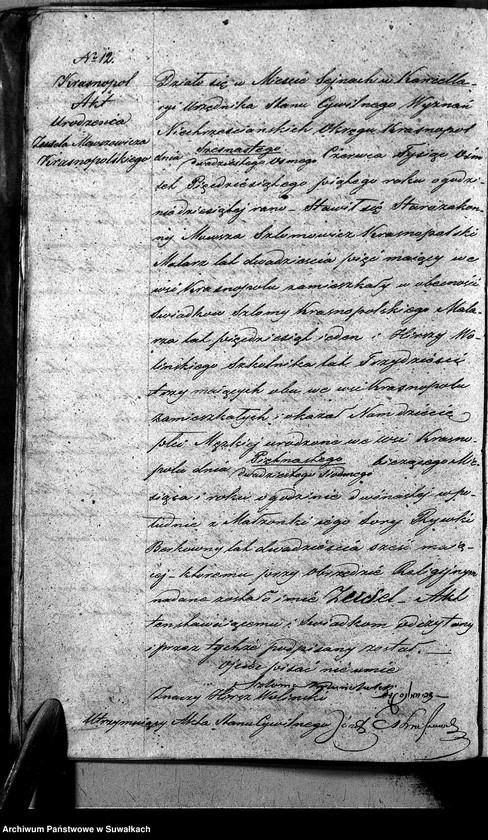 No 12.
Krasnopol
Akt
Urodzenia
Zeidela Mowszowicza
Krasnopolskiego
Działo się w Mieście Sejnach w Kancella-
ryi Urzędnika Stanu Cywilnego Wyznań
Niechrześcianskich Okręgu Krasnopol
dnia Szesnastego
dwudziestego Osmego Czerwca Tysiąc Ośm-
set Pięćdziesiątego piątego roku o godzi-
nie dziesiątej rano – Stawił się Starozakon-
ny Mowsza Szlomowicz Krasnopolski
Malarz lat dwadzieścia pięć maiący we
wsi Krasnopolu zamieszkały w obecności
Świadków Szlomy Krasnopolskiego Mala-
rza lat pięćdziesiąt ieden i Hirszy Wo-
lińskiego Szkolnika lat Trzydzieści
trzy maiących obu we wsi Krasnopolu
zamieszkałych i okazał Nam dziecię
płci Męzkiej urodzone we wsi Krasno-
polu dnia Piętnastego
dwudziestego siódmego bieżącego Mie-
siąca i roku o godzinie dwónastej w po-
łudnie z Małżonki iego Sory Rywki
Berkowny lat dwadzieścia sześć maią-
cej – któremu przy Obrzędzie Religijnym
nadane zostało imie Zeidel – Akt
ten stawaiącemu i Świadkom odczytany
i przez tychże podpisany został. –
Ojciec pisać nie umie
Szloma
Znaczy Hersz Woliński
Utrzymuiący Akta Stanu Cywilnego
Archiwum Państwowe w Suwałkach